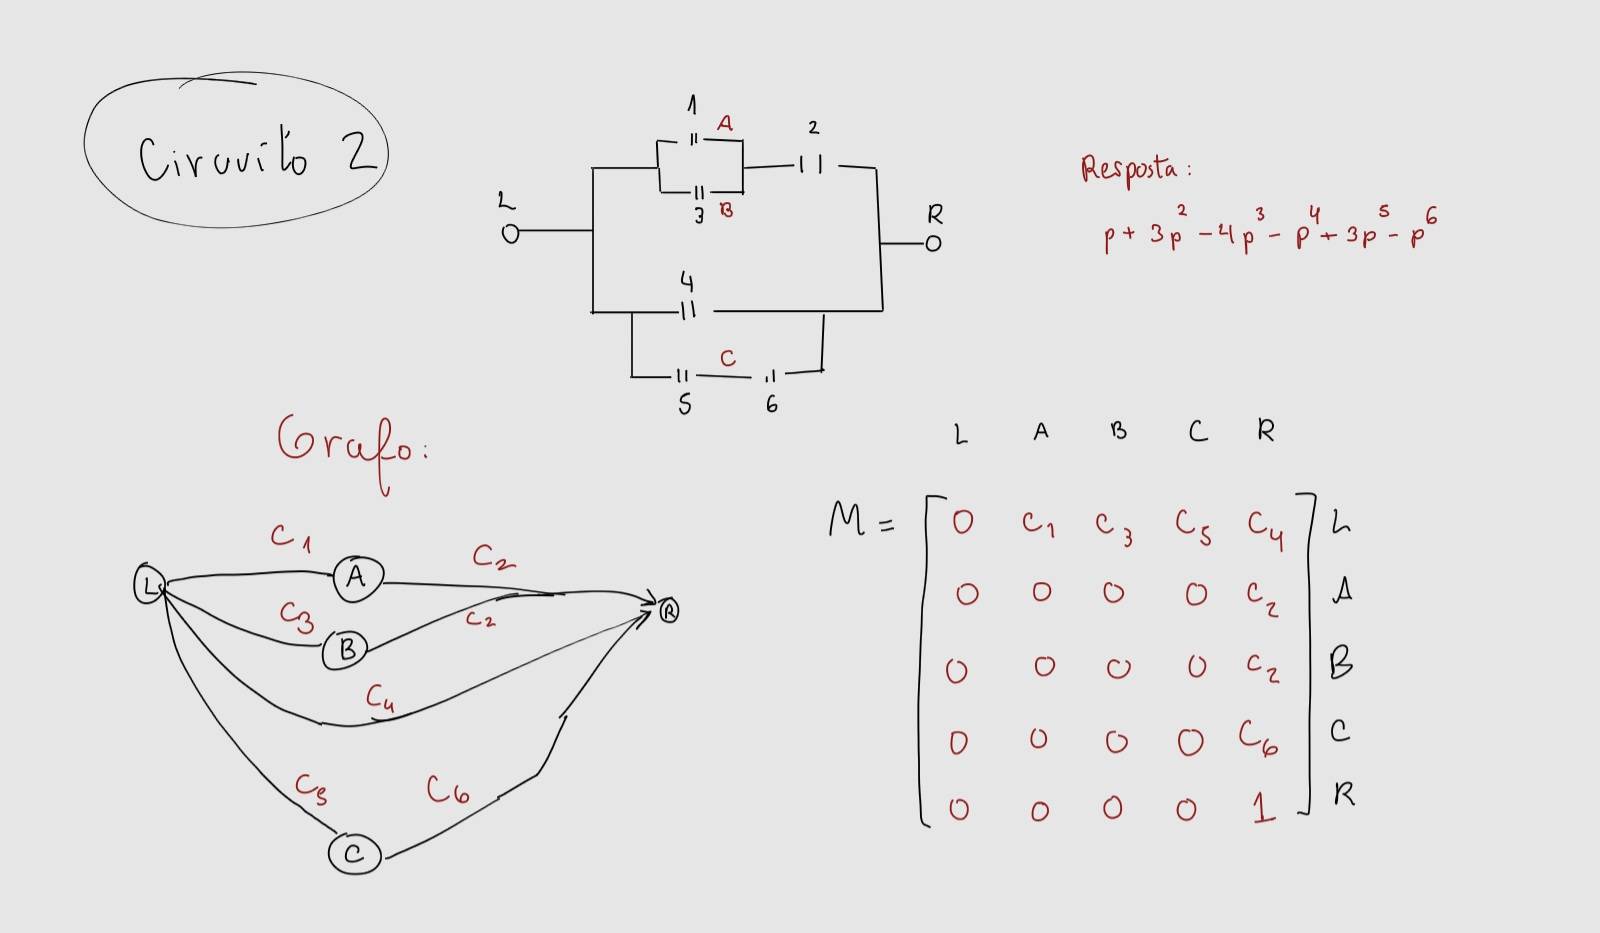 Circuito 2
1
A
2
3
B
L
R
4
C
5
6
Resposta:
p + 3p² - 4p³ - p⁴ + 3p⁵ - p⁶
Grafo:
C₁
C₂
L
A
C₃
C₂
R
B
C₄
C₅
C₆
C
L A B C R
M = [ 0 C₁ C₃ C₅ C₄ ] L
0 0 0 0 C₂ A
0 0 0 0 C₂ B
0 0 0 0 C₆ C
0 0 0 0 1 R